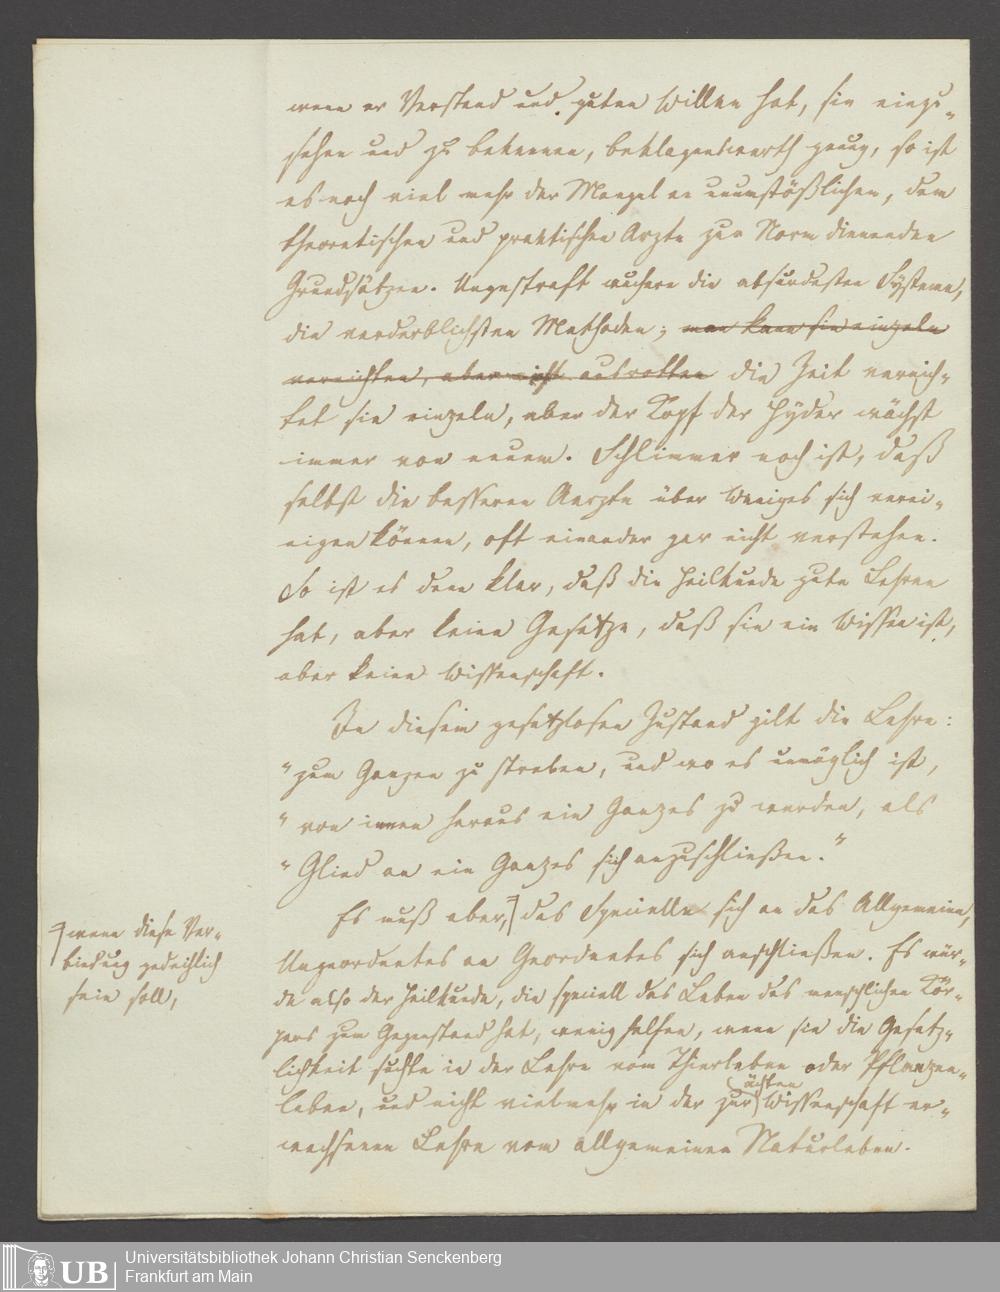 wenn er Verstand und guten Willen hat, sie einzu-
sehen und zu bekennen, beklagenswerth genug, so ist
es noch viel mehr der Mangel an unumstößlichen, dem
theoretischen und praktischen Arzte zur Norm dienenden
Grundsätzen. Ungestraft wuchern die absurdesten Systeme,
die verderblichsten Methoden; man kann sie einzeln
vernichten, aber nicht ausrotten die Zeit vernich-
tet sie einzeln, aber der Kopf der Hyder wächst
immer von neuem. Schlimmer noch ist, daß
selbst die besseren Aerzte über Weniges sich verei-
nigen können, oft einander gar nicht verstehen.
So ist es denn klar, daß die Heilkunde gute Lehren
hat, aber keine Gesetze, daß sie ein Wissen ist,
aber keine Wissenschaft.
In diesem gesetzlosen Zustand gilt die Lehre:
"zum Ganzen zu streben, und wo es unmöglich ist,
"von innen heraus ein Ganzes zu werden, als
"Glied an ein Ganzes sich anzuschließen."
Es muß aber, das Specielle sich an das Allgemeine,
wenn diese Ver-
bindung gedeihlich
sein soll,
Ungeordnetes an Geordnetes sich anschließen. Es wür-
de also der Heilkunde, die speciell das Leben des menschlichen Kör-
pers zum Gegenstand hat, wenig helfen, wenn sie die Gesetz-
lichkeit suchte in der Lehre vom Thierleben oder Pflanzen-
leben, und nicht vielmehr in der zur ächten Wissenschaft er-
wachsenen Lehre vom allgemeinen Naturleben.
UB
Universitätsbibliothek Johann Christian Senckenberg
Frankfurt am Main